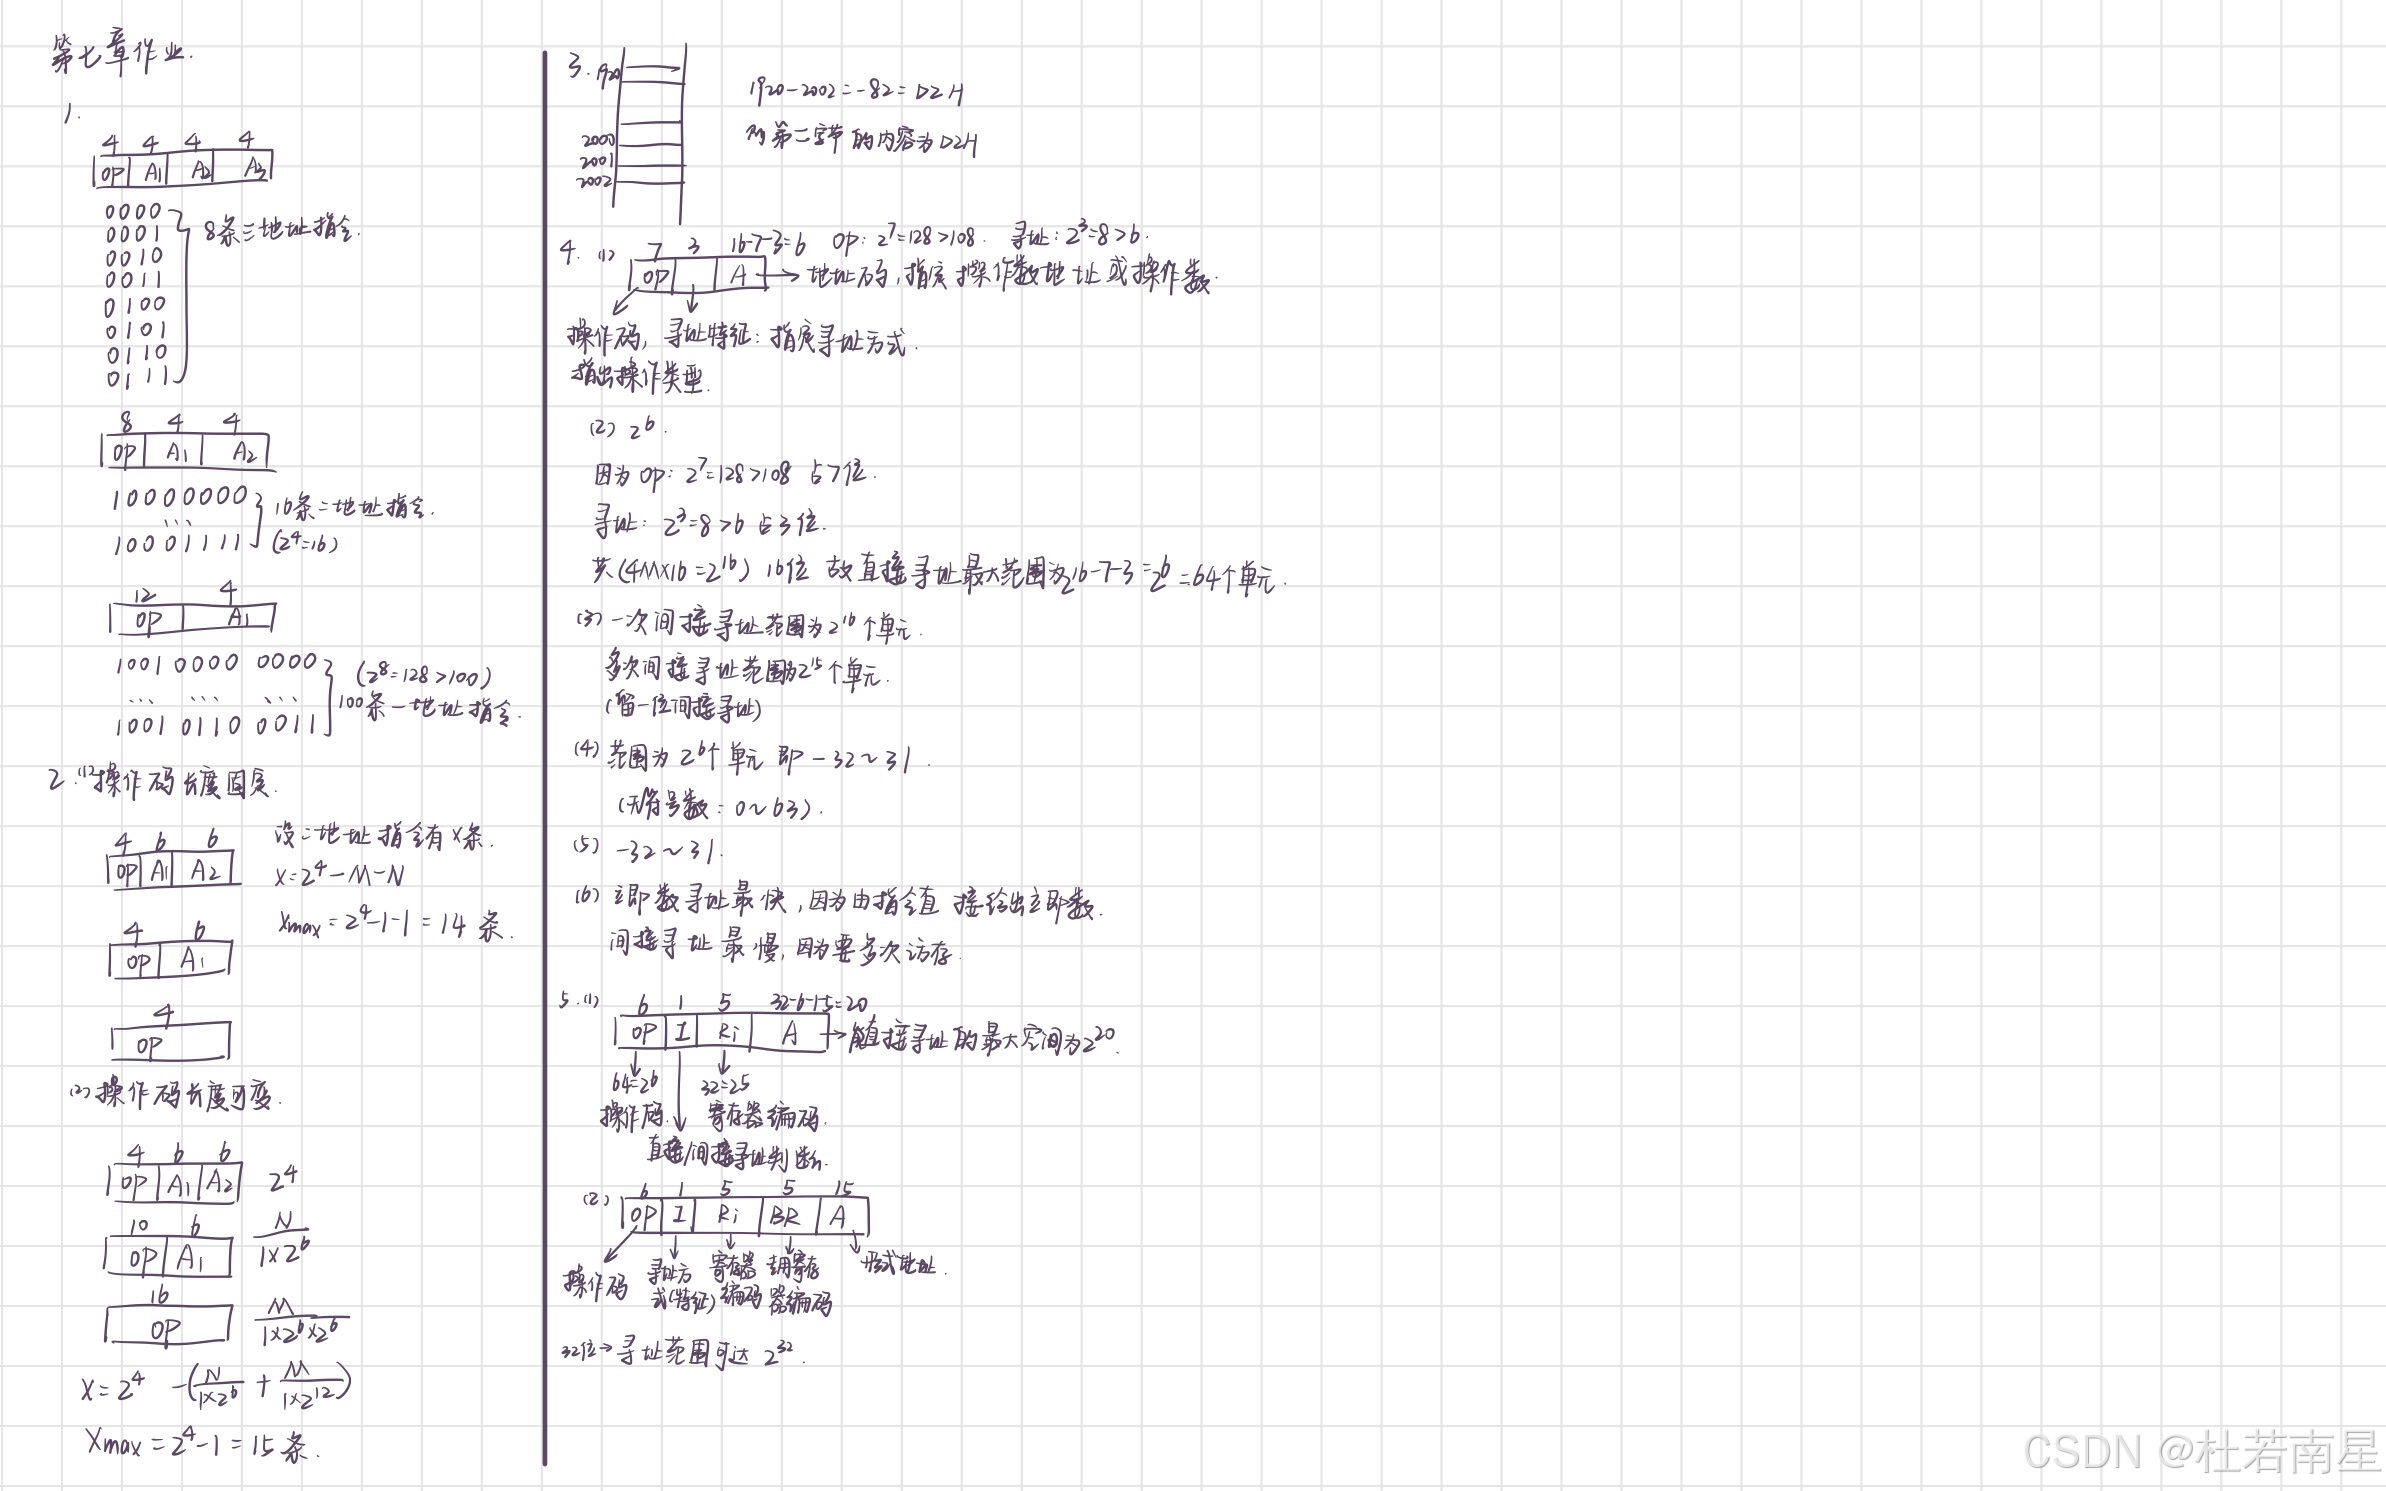 第七章作业.
1.
4 4 4 4
OP A1 A2 A3
0000
0001
0010
0011
0100
0101
0110
0111
8条三地址指令.
8 4 4
OP A1 A2
10000000
...
10001111
16条二地址指令.
(2^4=16)
12 4
OP A1
1001 0000 0000
... ... ...
1001 0110 0011
(2^8=128>100)
100条一地址指令.
2.(1)操作码长度固定.
4 6 6
OP A1 A2
设二地址指令有X条.
X=2^4-M-N
Xmax=2^4-1-1=14 条.
4 6
OP A1
4
OP
(2)操作码长度可变.
4 6 6
OP A1 A2 2^4
10 6
OP A1 N/(1×2^6)
16
OP M/(1×2^6×2^6)
X=2^4 -(N/(1×2^6) + M/(1×2^12))
Xmax=2^4-1=15条.
3. 1920
2000
2001
2002
1920-2002=-82=D2H
则第二字节的内容为D2H
4. (1) 7 3 16-7-3=6 OP: 2^7=128>108. 寻址: 2^3=8>6.
OP A → 地址码,指定操作数地址或操作数.
操作码, 寻址特征: 指定寻址方式.
指出操作类型.
(2) 2^6.
因为 OP: 2^7=128>108 占7位.
寻址: 2^3=8>6 占3位.
共(4M×16=2^16) 16位 故直接寻址最大范围为2^16-7-3=2^6=64个单元.
(3) 一次间接寻址范围为2^16个单元.
多次间接寻址范围为2^15个单元.
(留一位间接寻址)
(4) 范围为2^6个单元 即 -32~31.
(无符号数: 0~63).
(5) -32~31.
(6) 立即数寻址最快,因为由指令直接给出立即数.
间接寻址最慢,因为要多次访存.
5.(1) 6 1 5 32-6-1-5=20
OP I Ri A → 能直接寻址的最大空间为2^20.
64=2^6 32=25
操作码. 寄存器编码.
直接/间接寻址判断.
(2) 6 1 5 5 15
OP I Ri BR A
操作码 寻址方式(特征) 寄存器编码 器编码 形式地址.
32位→寻址范围可达 2^32.
CSDN @杜若南星